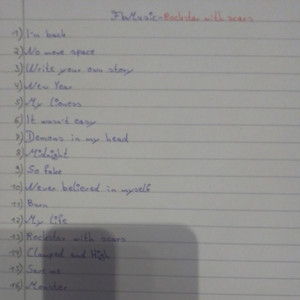 FloMusic-Rockstar with scars
1) I'm back
2) No more space
3) Write your own story
4) New Year
5) My
6) It wasn't easy
7) Demons in my head
8) Midnight
9) So fake
10) Never believed in myself
11) Born
12) My Life
13) Rockstar with scars
14) and High
15) Save me
16) Monster